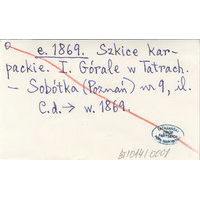 e. 1869. Szkice kar-
packie. I. Górale w Tatrach.
- Sobótka (Poznań) nr 9, il.
C.d.→ w. 1869.